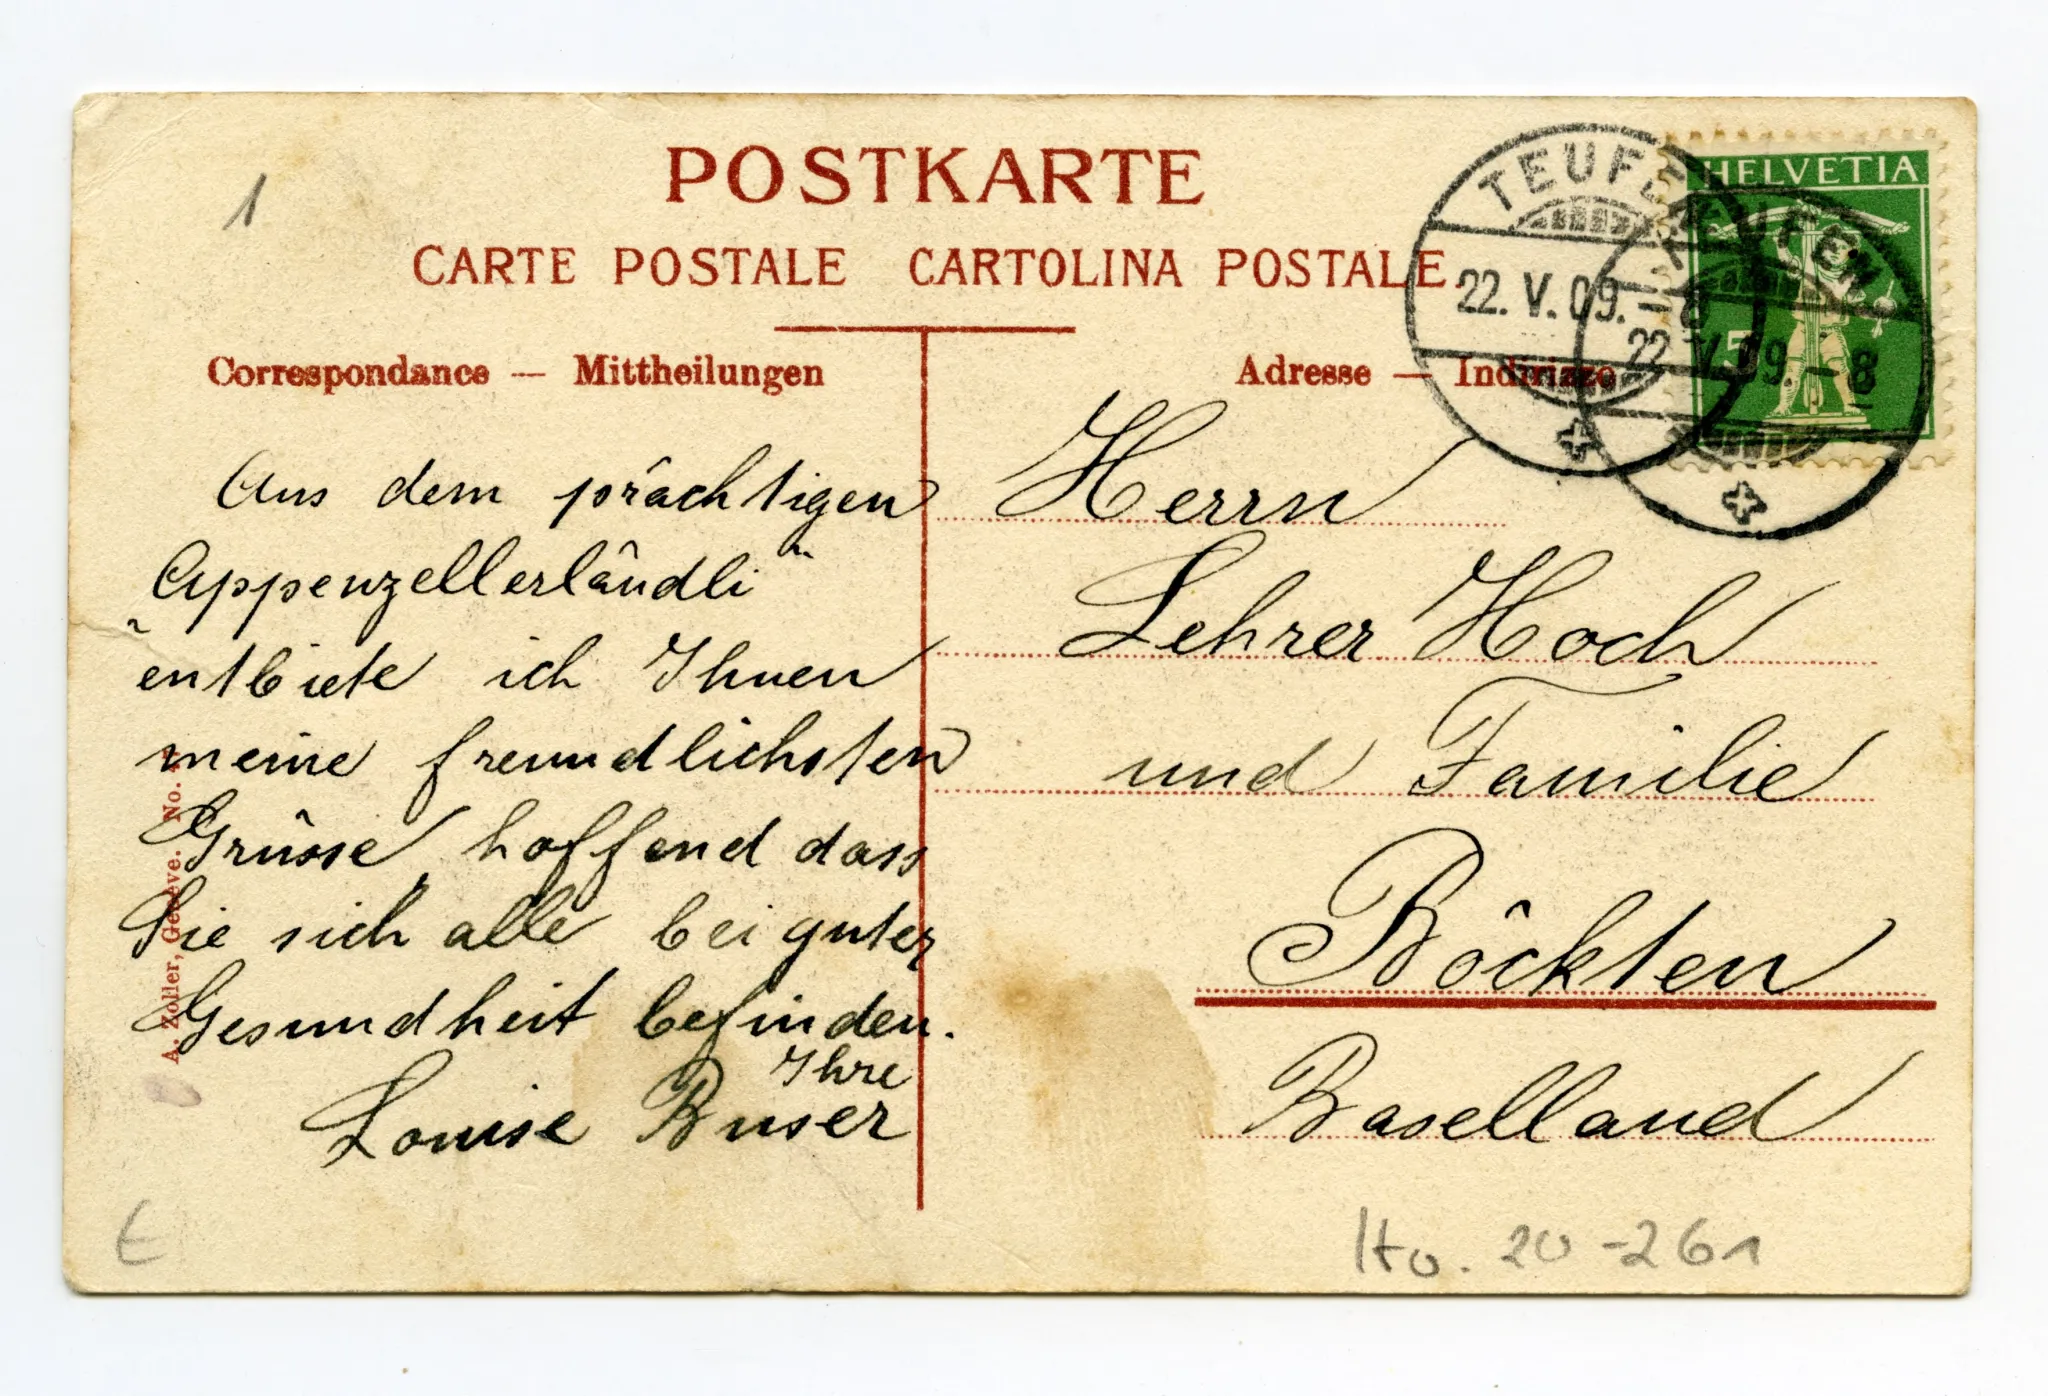 1
POSTKARTE
CARTE POSTALE CARTOLINA POSTALE.
Correspondance — Mittheilungen
Adresse — Indirizzo
TEUFEN
22. V. 09. – 8
TEUFEN
22. V. 09. – 8
HELVETIA
5
Aus dem prächtigen
Appenzellerländli"
"entbiete ich Ihnen
meine freundlichsten
Grüsse, hoffend dass
Sie sich alle bei guter
Gesundheit befinden.
Ihre
Louise Buser
Herrn
Lehrer Hoch
und Familie
Böckten
Baselland
A. Zoller, Genève. No.
E
20-261